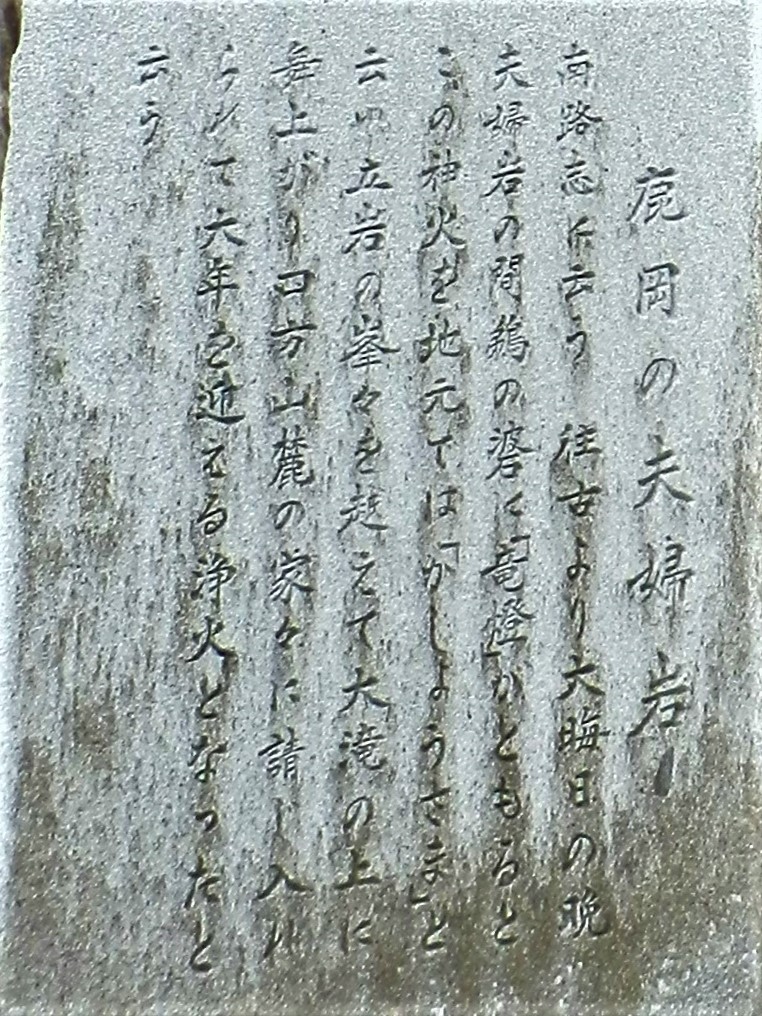 鹿岡の夫婦岩
南路志に云う 往古より大晦日の晩
夫婦岩の間鵜の碆に「竜燈」がともると
この神火を地元では「かしょうさま」と
云い立岩の峯々を越えて大滝の上に
舞上がり四方山麓の家々に請じ入れ
られて六年を迎える浄火となったと
云う